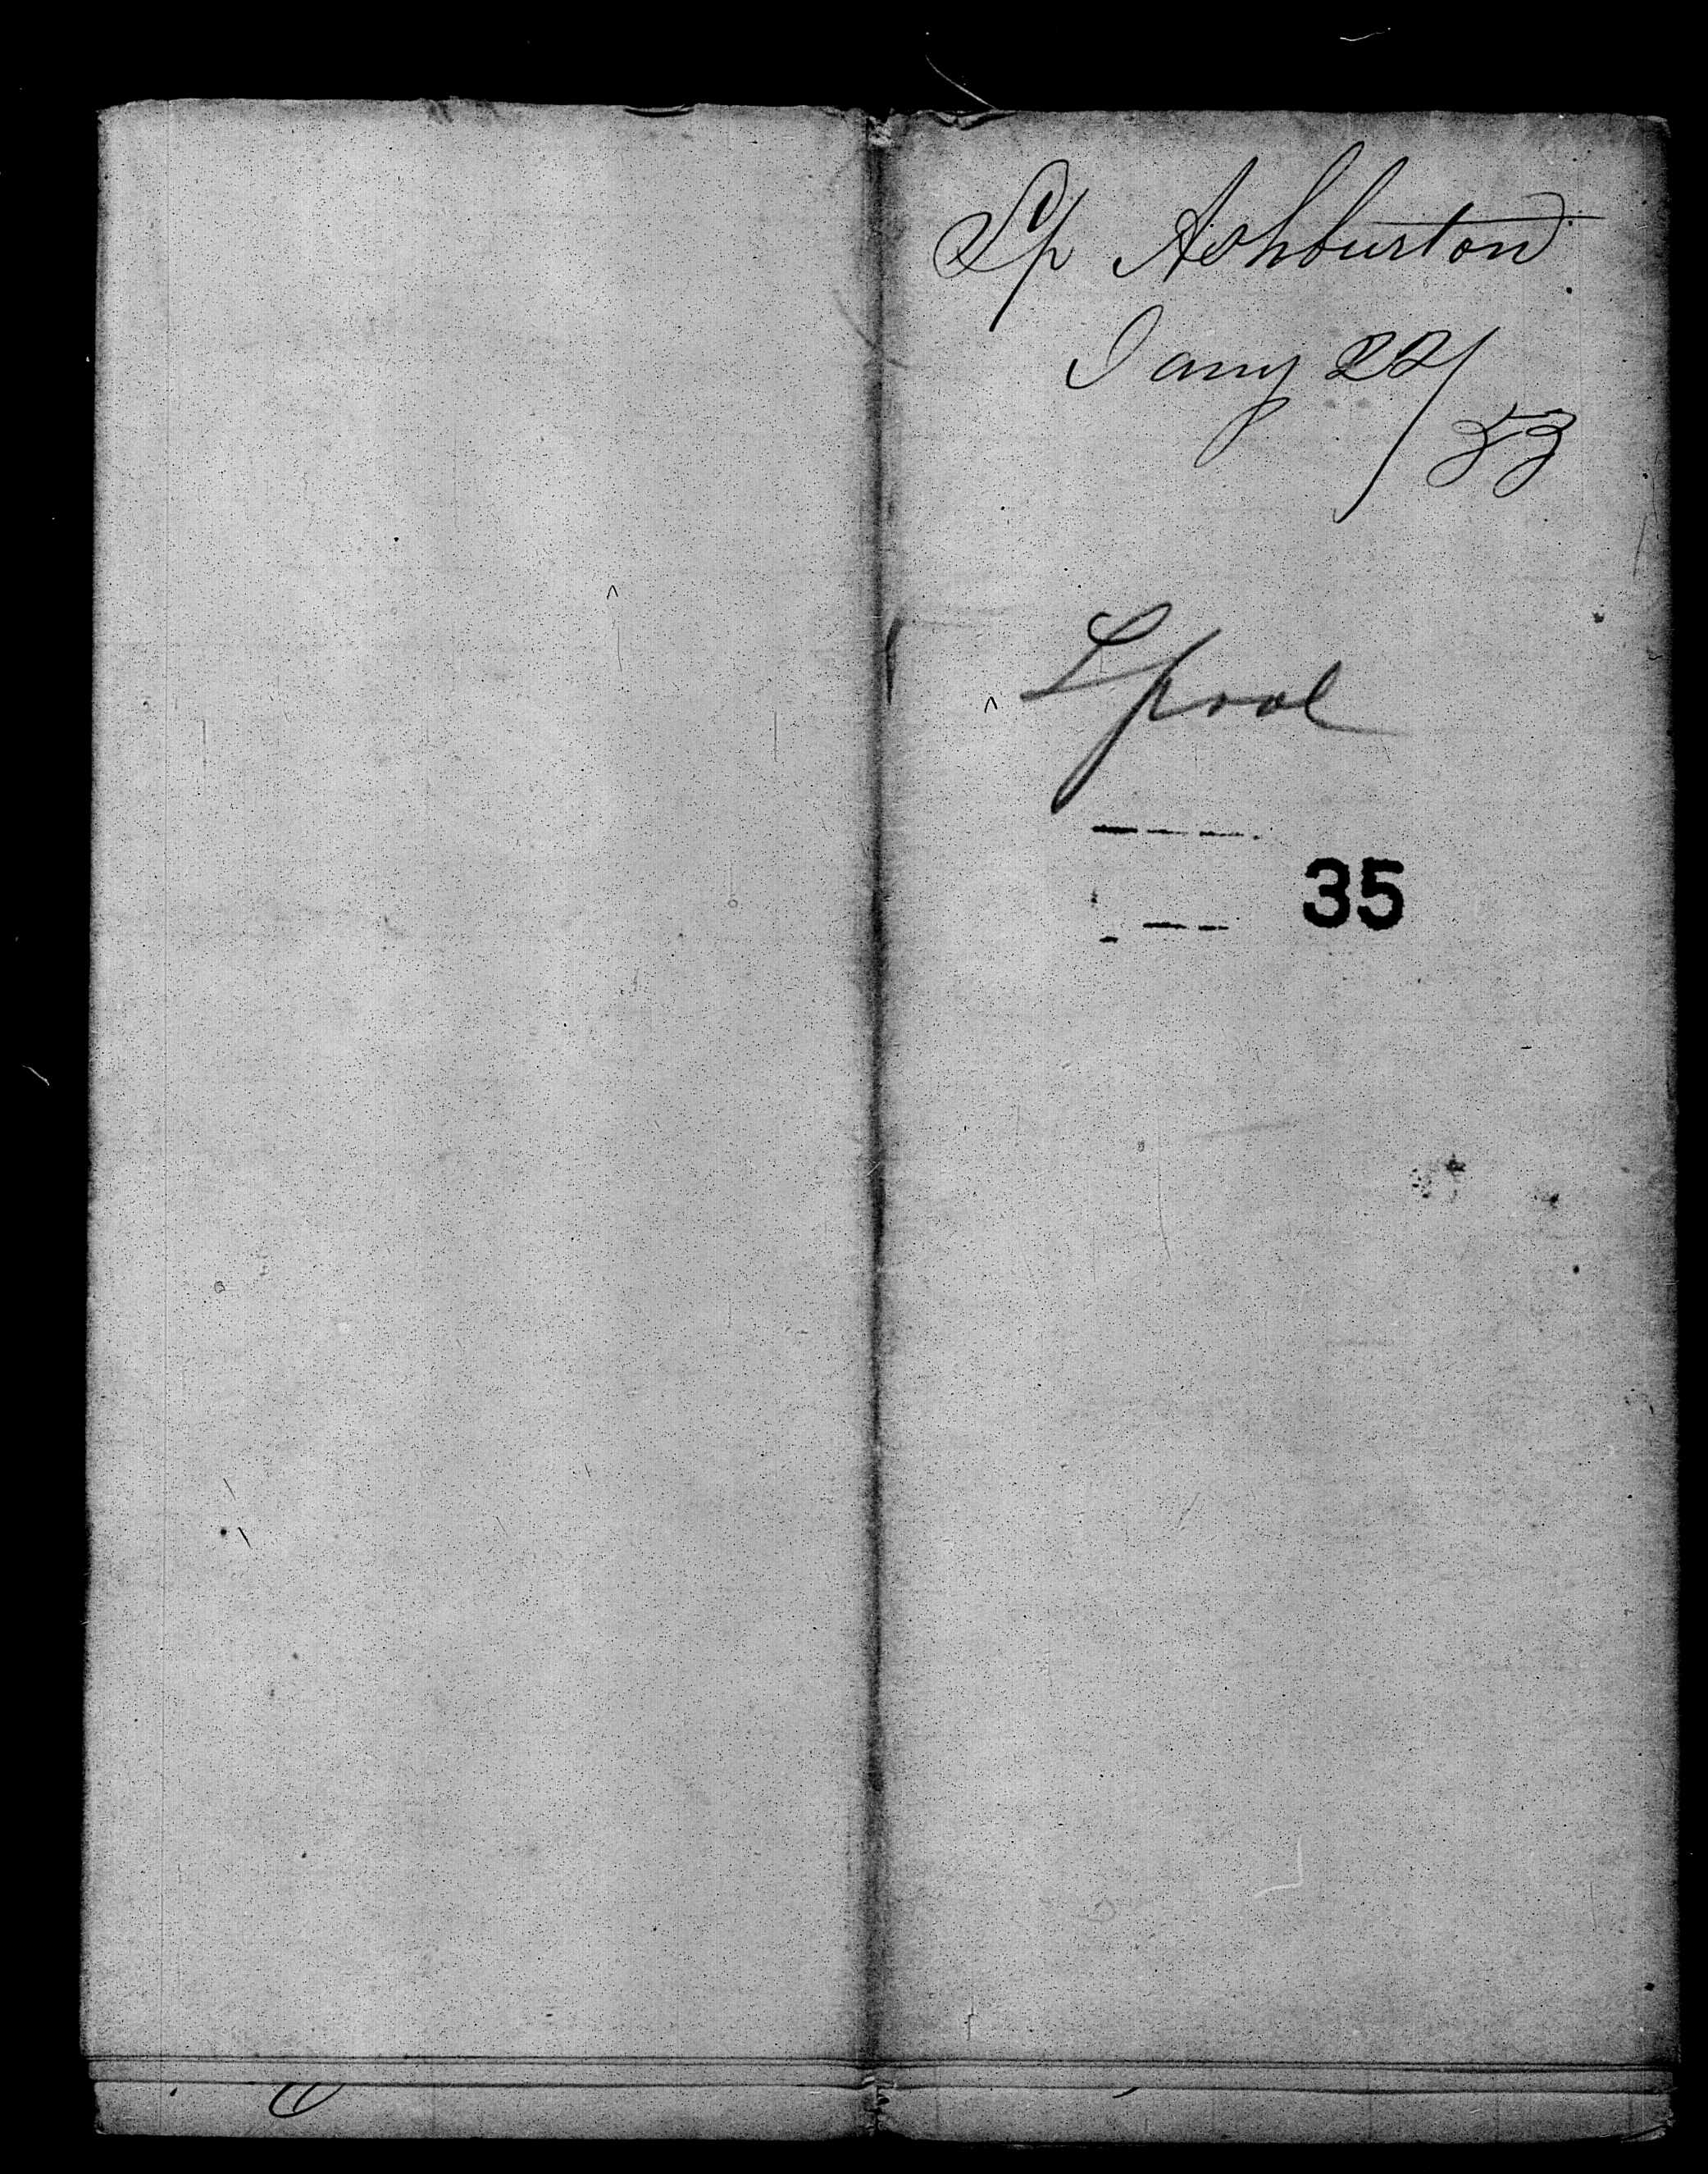 Sp Ashburton
Jany 22/
53
Lpool
35